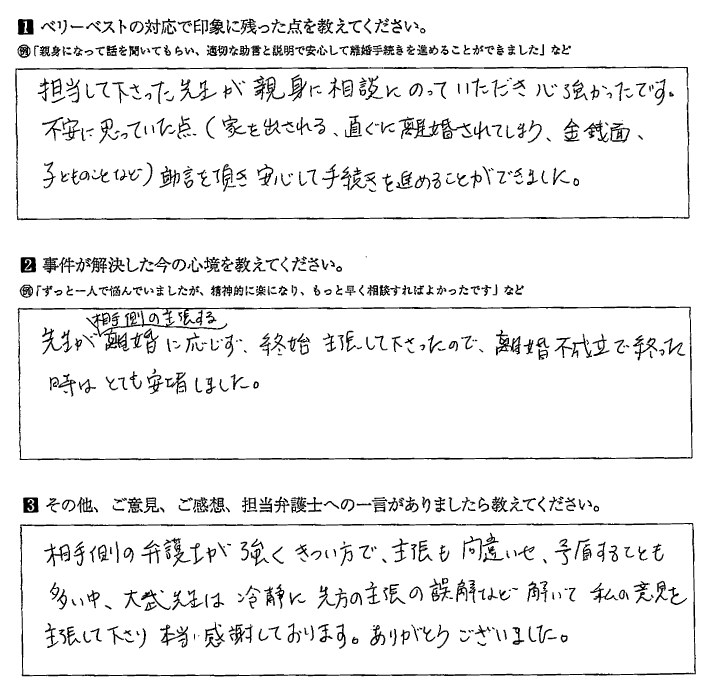 1 ベリーベストの対応で印象に残った点を教えてください。
例「親身になって話を聞いてもらい、適切な助言と説明で安心して離婚手続きを進めることができました」など
担当して下さった先生が親身に相談にのっていただき心強かったです。
不安に思っていた点(家を出される、直ぐに離婚されてしまう、金銭面、
子どものことなど)助言を頂き安心して手続きを進めることができました。
2 事件が解決した今の心境を教えてください。
例「ずっと一人で悩んでいましたが、精神的に楽になり、もっと早く相談すればよかったです」など
相手側の主張する
先生が離婚に応じず、終始主張して下さったので、離婚不成立で終った
時はとても安堵しました。
3 その他、ご意見、ご感想、担当弁護士への一言がありましたら教えてください。
相手側の弁護士が強くきつい方で、主張も間違いや、矛盾することも
多い中、大武先生は冷静に先方の主張の誤解など解いて私の意見を
主張して下さり本当に感謝しております。ありがとうございました。